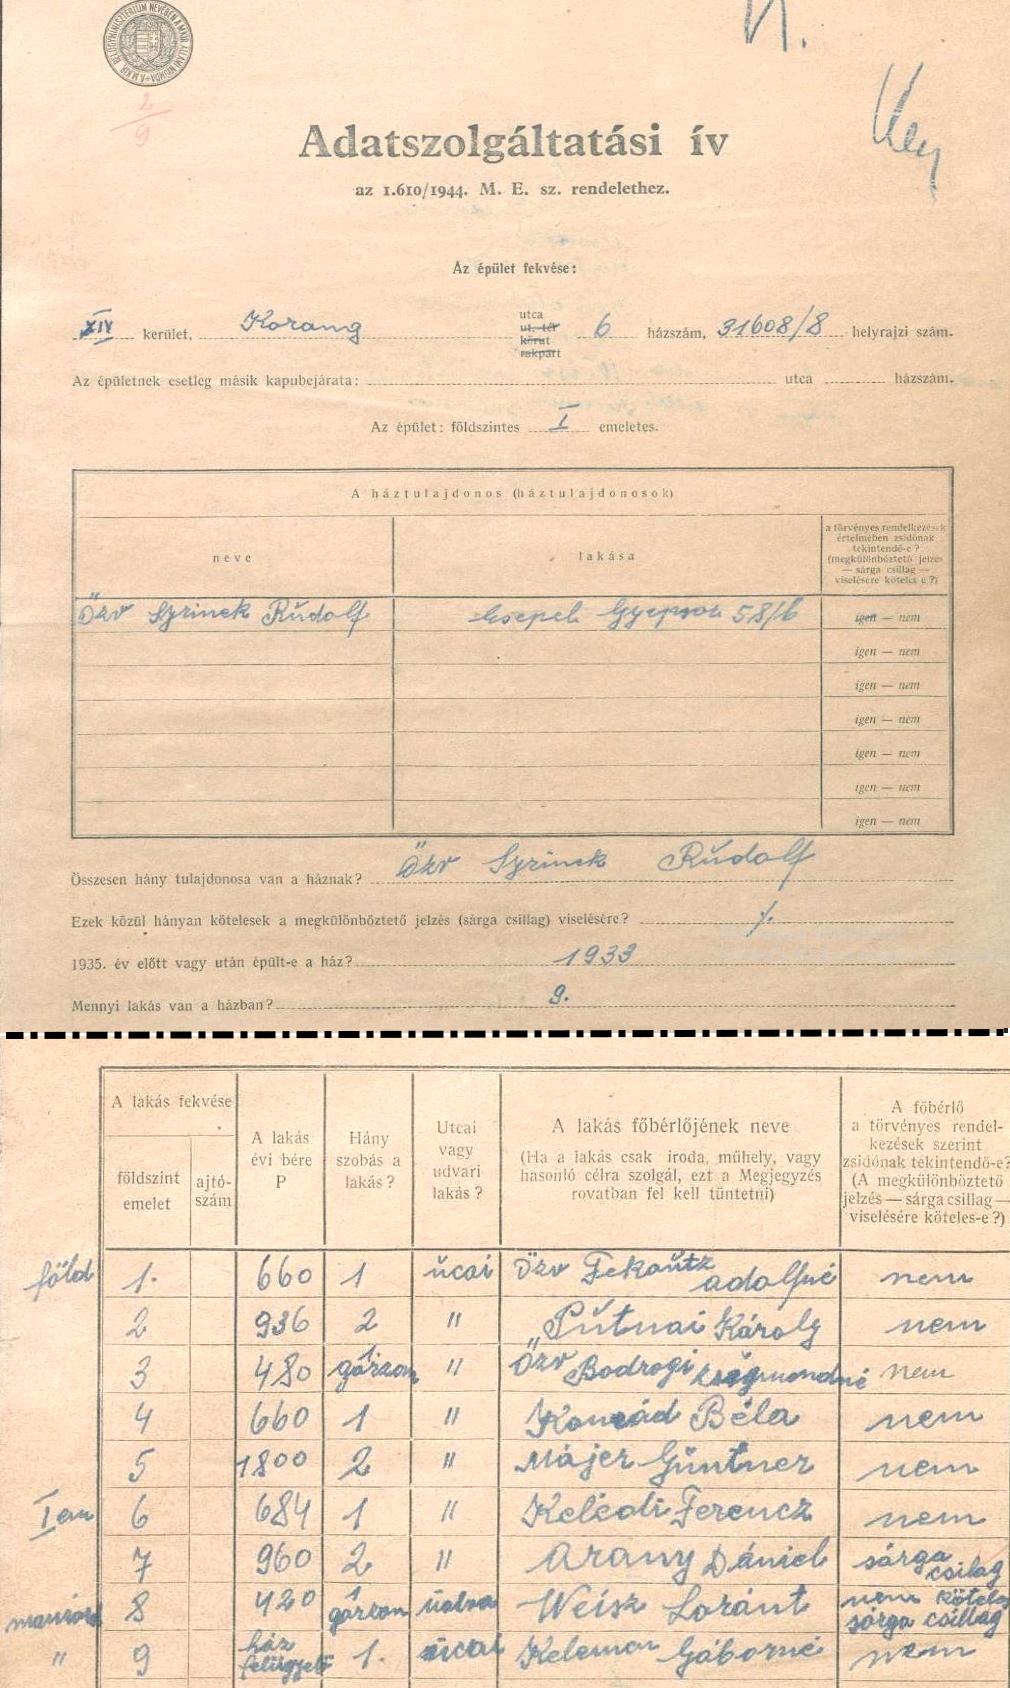 2
9
Adatszolgáltatási ív
az 1.610/1944. M. E. sz. rendelethez.
Az épület fekvése:
XIV kerület, Korong utca ut, tér körut rakpart 6 házszám, 31608/8 helyrajzi szám.
Az épületnek esetleg másik kapubejárata: utca házszám.
Az épület: földszintes I emeletes.
A háztulajdonos (háztulajdonosok)
neve lakása a törvényes rendelkezések értelmében zsidónak tekintendő-e? (megkülönböztető jelzés — sárga csillag — viselésére köteles-e?)
Özv Szrinek Rudolf Csepel 58/b igen — nem
igen — nem
igen — nem
igen — nem
igen — nem
igen — nem
igen — nem
Összesen hány tulajdonosa van a háznak? Özv Szrinek Rudolf
Ezek közül hányan kötelesek a megkülönböztető jelzés (sárga csillag) viselésére? ⁒
1935. év előtt vagy után épült-e a ház? 1933
Mennyi lakás van a házban? 9.
A lakás fekvése
földszint emelet
ajtó-szám
A lakás évi bére P
Hány szobás a lakás?
Utcai vagy udvari lakás?
A lakás főbérlőjének neve
(Ha a lakás csak iroda, műhely, vagy hasonló célra szolgál, ezt a Megjegyzés rovatban fel kell tüntetni)
A főbérlő a törvényes rendel-kezések szerint zsidónak tekintendő-e? (A megkülönböztető jelzés — sárga csillag — viselésére köteles-e?)
föld 1. 660 1 ucai Özv Fekautz adolfné nem
2 936 2 " Putnai Károly nem
3 480 gárzon " Özv Bodrogi nem
4 660 1 " Konrád Béla nem
5 1800 2 " Májer Güntner nem
I em 6 684 1 " Kelédi Ferencz nem
7 960 2 " Arany Dániel sárga csilag
8 420 gárzon Weisz Loránt nem köteles sárga csillag
" 9 ház felügyelő 1. ucai Kelemen Gáborné nem